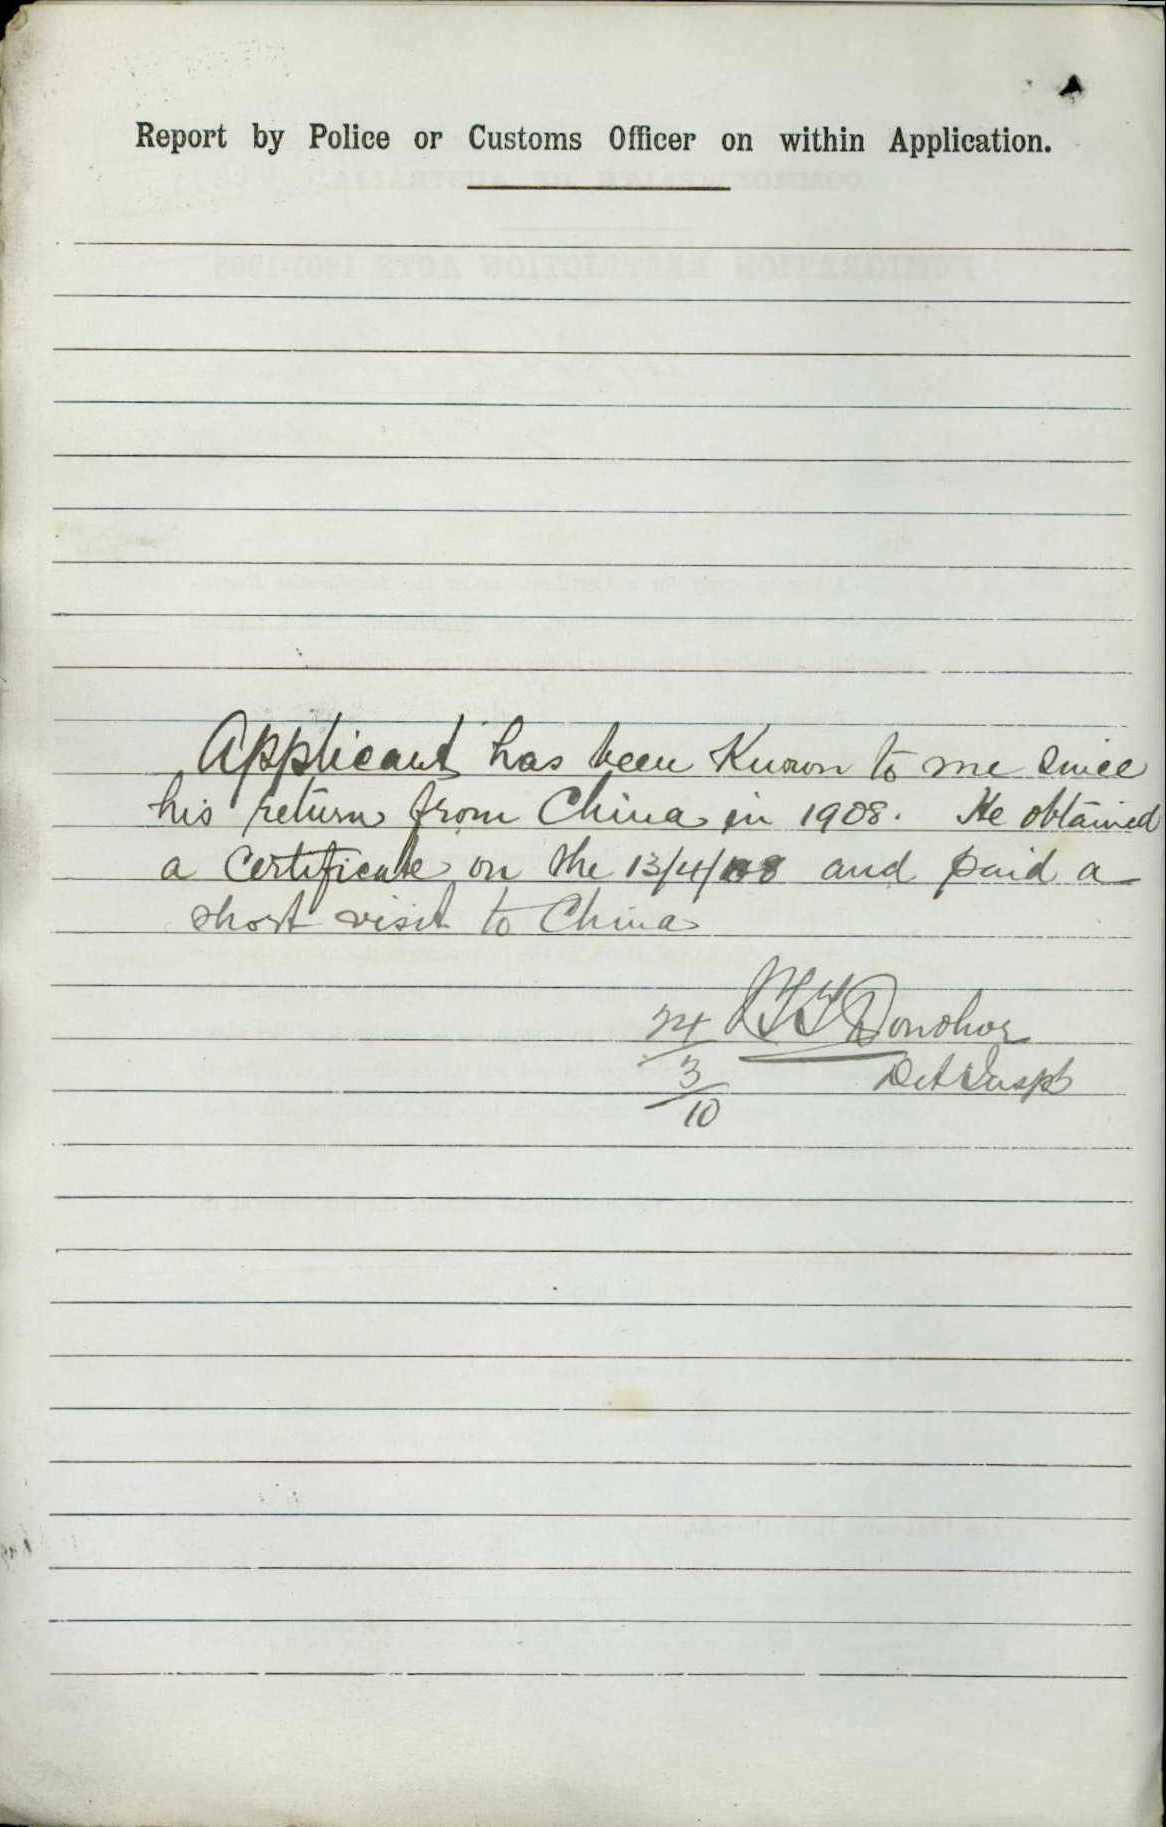 Report by Police or Customs Officer on within Application.
Applicant has been Known to me since
his return from China in 1908. He obtained
a Certificate on the 13/4/08 and paid a
short visit to China
24 Donohoe
3 Det Inspr
10